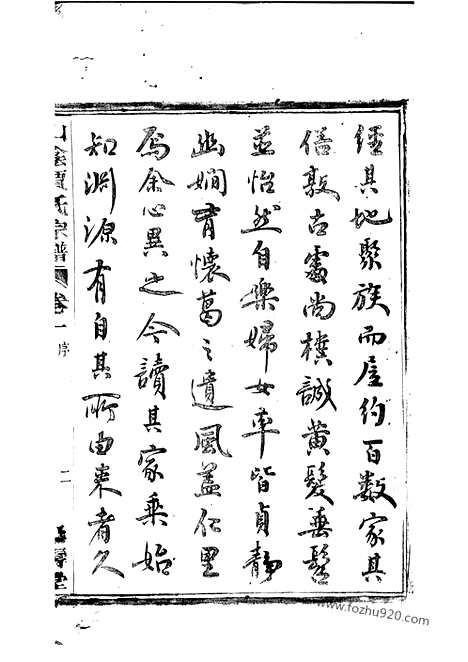 經其地聚族而居約百數家其
俗敦古處尚樸誠黃髮垂髫
並怡然自樂婦女率皆貞靜
幽嫻有懷葛之遺風蓋仁里
焉余心異之今讀其家乘始
知淵源有自其所由來者久
山陰賈氏宗譜 卷一 序 二
www.fozhu920.com